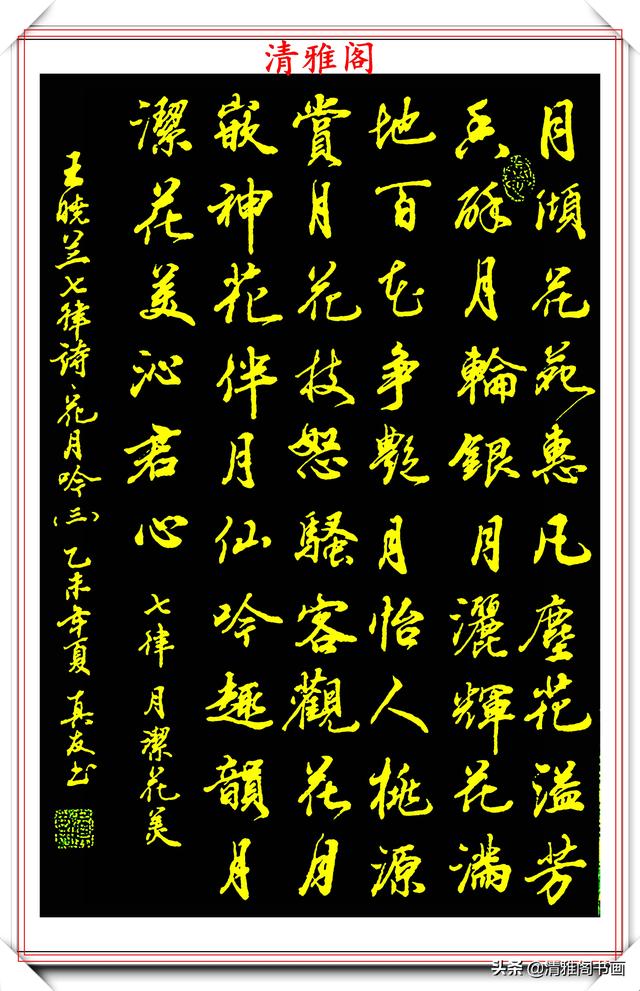 清雅阁
月傾花苑惠凡塵花溢芳
香醉月輪銀月灑輝花滿
地百花爭艷月怡人桃源
賞月花枝怒騷客觀花月
嵌神花伴月仙吟趣韻月
潔花美沁君心 七律 月潔花美
王晓兰七律詩、花月吟(三) 乙未年夏 真友书
头条 @清雅阁书画